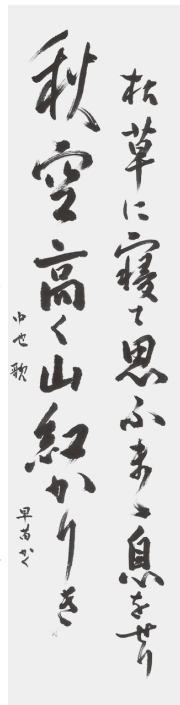 枯草に寝て思ふまゝ息をせり
秋空高く山紅かりき
中也 歌
早苗かく